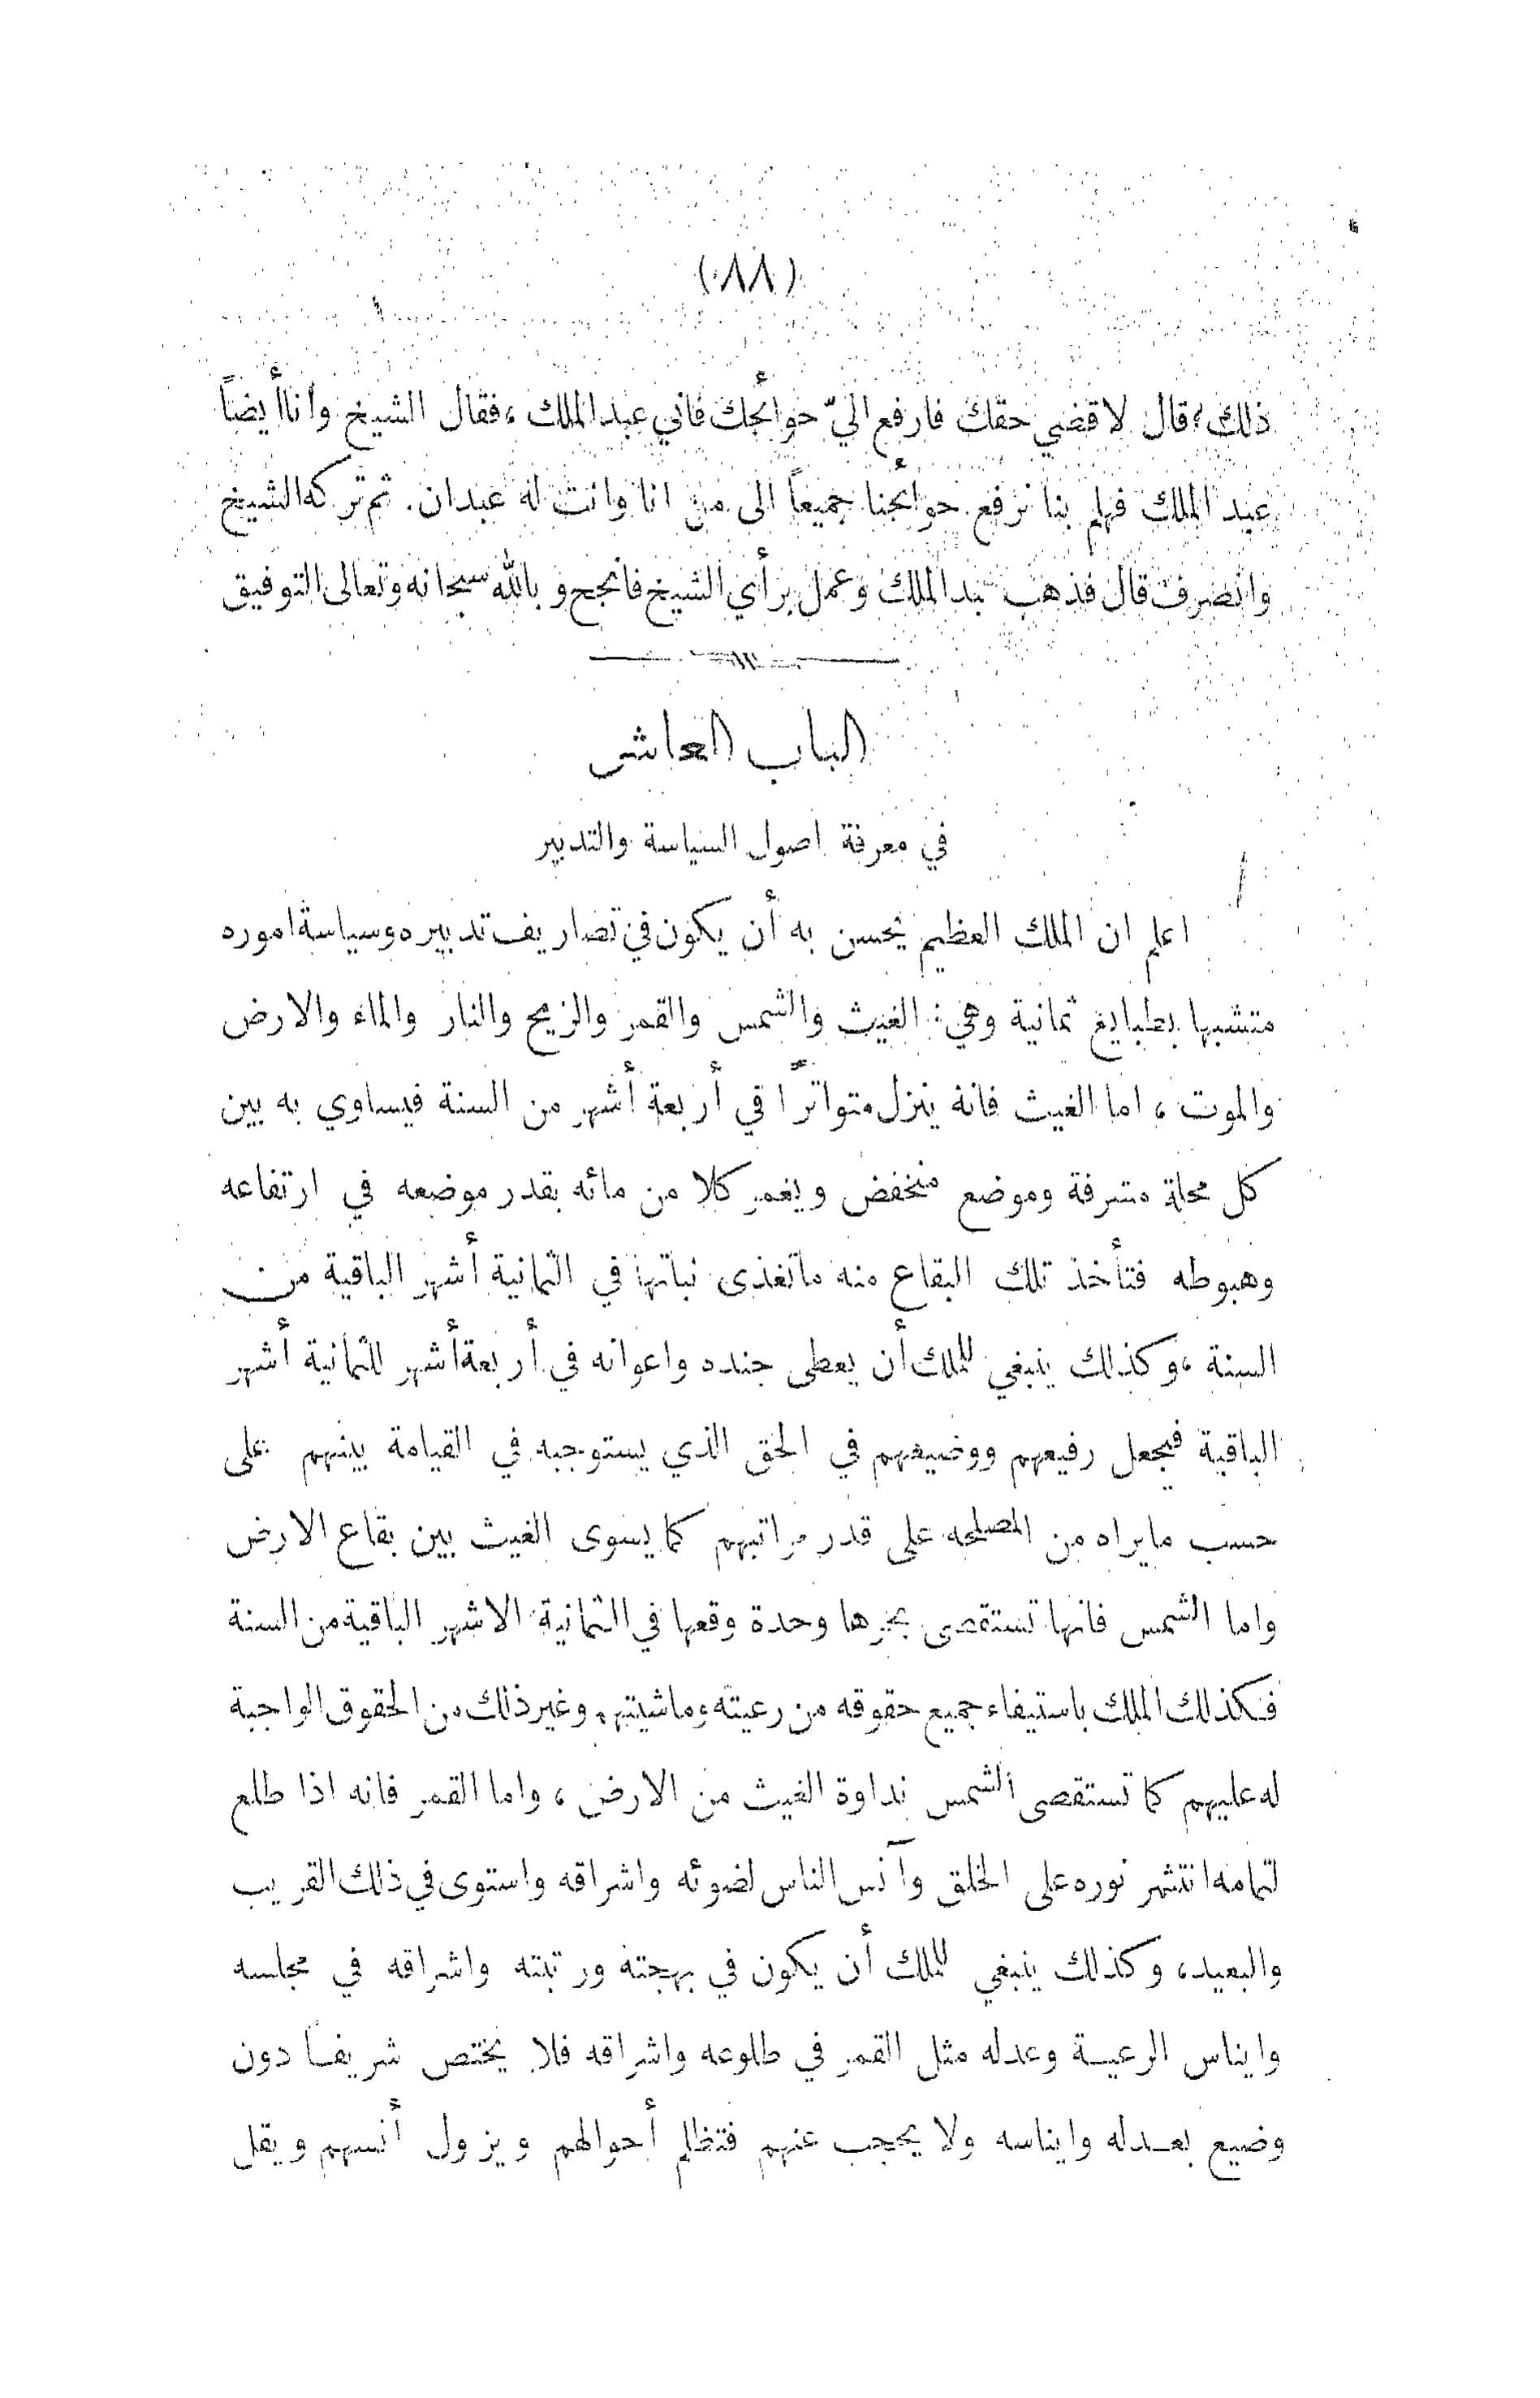 (٨٨)
ذلك؟ قال لاقضي حقك فارفع اليّ حوائجك فاني عبد الملك ، فقال الشيخ وأنا أيضاً
عبد الملك فهلم بنا نرفع حوائجنا جميعاً الى من انا وانت له عبدان . ثم تركه الشيخ
وانصرف قال فذهب عبد الملك وعمل برأي الشيخ فأنجح وبالله سبحانه وتعالى التوفيق
الباب العاشر
في معرفة اصول السياسة والتدبير
اعلم ان الملك العظيم يحسن به أن يكون في تصاريف تدبيره وسياسة اموره
متشبها بطبايع ثمانية وهي : الغيث والشمس والقمر والريح والنار والماء والارض
والموت ، اما الغيث فانه ينزل متواتراً في أربعة أشهر من السنة فيساوي به بين
كل محلة مشرفة وموضع منخفض ويغمر كلا من مائه بقدر موضعه في ارتفاعه
وهبوطه فتأخذ تلك البقاع منه ما تغذى نباتها في الثمانية أشهر الباقية من
السنة ، وكذلك ينبغي للملك أن يعطى جنده واعوانه في أربعة أشهر للثمانية أشهر
الباقية فيجعل رفيعهم ووضيعهم في الحق الذي يستوجبه في القيامة بينهم على
حسب مايراه من المصلحه على قدر مراتبهم كما يسوى الغيث بين بقاع الارض
واما الشمس فانها تستقصى بحرها وحدة وقعها في الثمانية الاشهر الباقية من السنة
فكذلك الملك باستيفاء جميع حقوقه من رعيته وماشيتهم وغير ذلك من الحقوق الواجبة
له عليهم كما تستقصى الشمس نداوة الغيث من الارض ، واما القمر فانه اذا طلع
لتمامه انتشر نوره على الخلق وآنس الناس لضوئه واشراقه واستوى في ذلك القريب
والبعيد ، وكذلك ينبغي للملك أن يكون في بهجته ورتبته واشراقه في مجلسه
وايناس الرعيـة وعدله مثل القمر في طلوعه واشراقه فلا يختص شريفـا دون
وضيع بعـدله وايناسه ولا يحجب عنهم فتظلم أحوالهم ويزول أنسهم ويقل